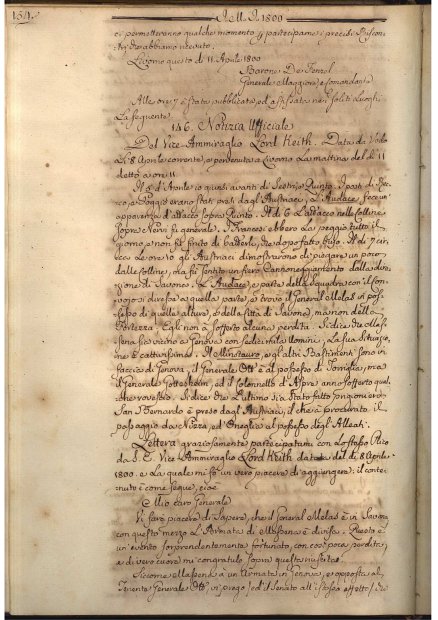 154.
A.M.D. 1800
ci permetteranno qualche momento p. partecipare i precisi Riscon-
tri che abbiamo ricevuto.
Livorno questo dì 11. Aprile 1800
Barone
Generale Maggiore, e Comandante
Alle ore 7 è stata pubblicata, ed affissata ne' soliti Luoghi
La seguente
146. Notizia Ufficiale
Del Vice-Ammiraglio Lord Keith. Data da
Li 8 Aprile corrente, e pervenuta a Livorno La mattina del dì 11
detto a ore 11
Il dì Aprile io giunsi avanti di Sestri, e Quinto. I posti di
e Poggio erano stati presi dagli Austriaci, L'Audace fece un
apparenza d'attacco sopra Quinto. Il dì 6 L'attacco nelle Colline
sopra Nervi fu generale. I Francesi ebbero La peggio tutto il
giorno, e non si finì di batterli, che dopo fatto bujo. Il dì 7 cir-
ca Le ore 10 gli Austriaci dimostrarono di piegare un poco
dalle Colline, ma si sentito un fiero Cannoneggiamento dalla dire-
zione di Savona. L'Audace, e parte della Squadra con il Con-
vojo si diresse a quella parte, e trovò il General Melas in pos-
sesso di quelle alture, e della Città di Savona, ma non della
Fortezza. Egli non à sofferto alcuna perdita. Si dice che Mas-
sena sia vicino a Genova con sedici mila Uomini. La sua Situazio-
ne è cattivissima. Il Minotauro, e gl'altri Bastimenti sono in
faccia di Genova, il Generale Ott' è al possesso di ma
il Generale Gottesheim, ed il Colonnello d'Aspre anno sofferto qual-
che rovescio. Si dice che L'ultimo sia stato fatto prigioniero
San Bernardo è preso dagl'Austriaci, il che à procurato il
passaggio da Nizza, ed Oneglia al possesso degl'Alleati.
Lettera graziosamente partecipatami con Lo stesso Plico
da S. E. Vice-Ammiraglio Lord Keith data de' dì 8 Aprile
1800. e La quale mi fò un vero piacere di aggiungere; il conte-
nuto è come segue, cioè
Mio caro Generale
Vi farà piacere di sapere, che il General Melas è in Savona
con questo mezzo L'Armata di Massena è divisa. Questo è
un'evento sorprendentemente fortunato, con così poca perdita,
e di vero cuore mi congratulo sopra questa riuscita.
Siccome Massena à un Armata in Genova, e opposta al
Tenente Generale Ott, vi prego, ed il Senato all'istesso effetto, che